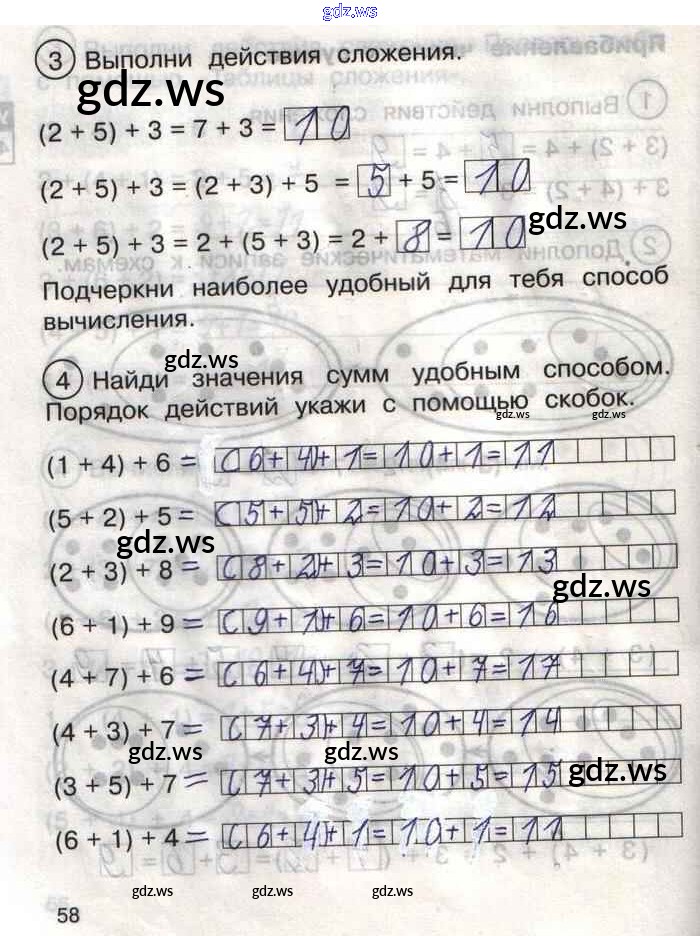 gdz.ws
3 Выполни действия сложения.
gdz.ws
(2 + 5) + 3 = 7 + 3 = 10
(2 + 5) + 3 = (2 + 3) + 5 = 5 + 5 = 10
gdz.ws
(2 + 5) + 3 = 2 + (5 + 3) = 2 + 8 = 10
Подчеркни наиболее удобный для тебя способ
вычисления.
gdz.ws
4 Найди значения сумм удобным способом.
Порядок действий укажи с помощью скобок.
gdz.ws gdz.ws
(1 + 4) + 6 = (6+4)+1=10+1=11
(5 + 2) + 5 = (5+5)+2=10+2=12
gdz.ws
(2 + 3) + 8 = (8+2)+3=10+3=13
gdz.ws
(6 + 1) + 9 = (9+1)+6=10+6=16
(4 + 7) + 6 = (6+4)+7=10+7=17
(4 + 3) + 7 = (7+3)+4=10+4=14
gdz.ws gdz.ws gdz.ws
(3 + 5) + 7 = (7+3)+5=10+5=15
(6 + 1) + 4 = (6+4)+1=10+1=11
gdz.ws gdz.ws gdz.ws
58